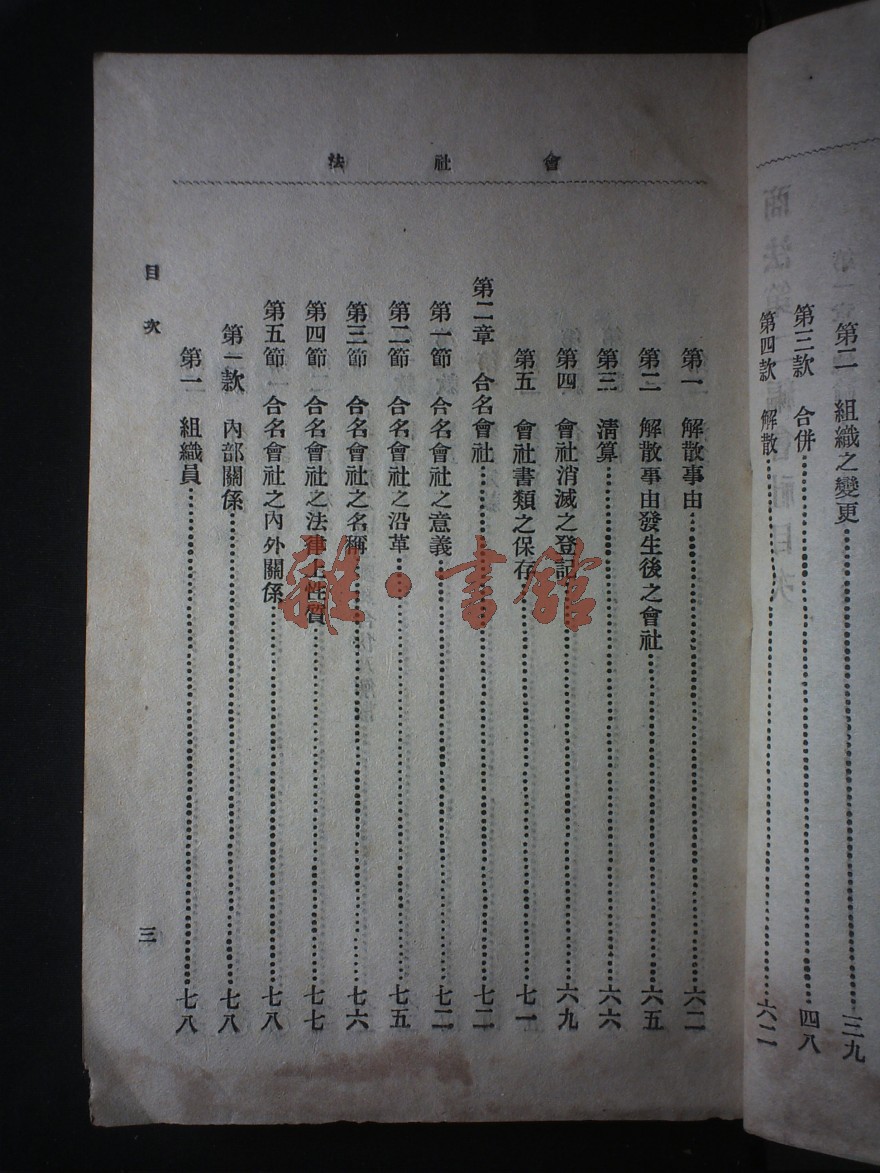 第二 組織之變更 三九
第三款 合併 四八
第四款 解散 六二
會社法
第一 解散事由 六二
第二 解散事由發生後之會社 六五
第三 淸算 六六
第四 會社消滅之登記 六九
第五 會社書類之保存 七一
第二章 合名會社 七二
第一節 合名會社之意義 七二
第二節 合名會社之沿革 七五
第三節 合名會社之名稱 七六
第四節 合名會社之法律上性質 七七
第五節 合名會社之內外關係 七八
第一款 內部關係 七八
第一 組織員 七八
目次
三
雜·書館